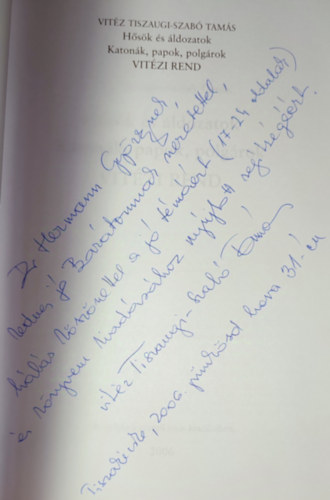 VITÉZ TISZAUGI-SZABÓ TAMÁS
Hősök és áldozatok
Katonák, papok, polgárok
VITÉZI REND
Dr Hermann Győzőnek
kedves jó Barátomnak szeretettel,
hálás köszönettel a jó témáért (17-24 oldalak)
és könyvem kiadásához nyújtott segítségéért.
vitéz Tiszaugi-Szabó Tamás
Tiszakécske, 2006 pünkösd hava 31-én